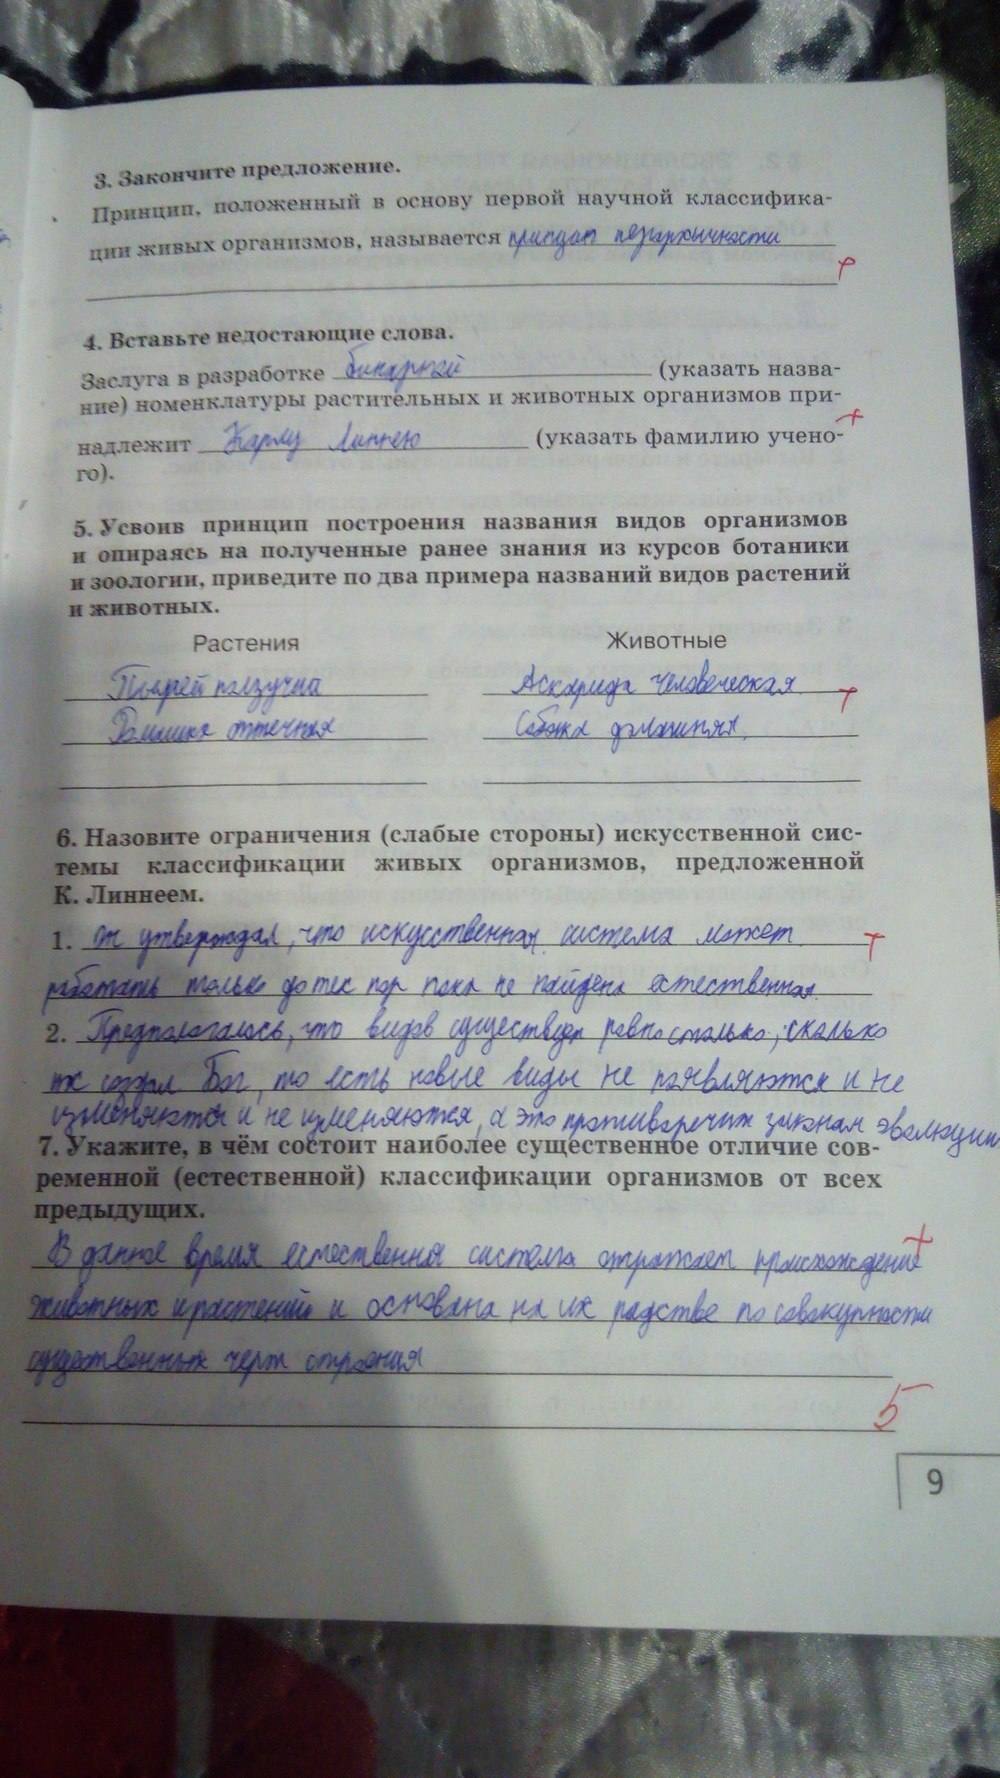 3. Закончите предложение.
Принцип, положенный в основу первой научной классифика-
ции живых организмов, называется принцип иерархичности
+
4. Вставьте недостающие слова.
Заслуга в разработке бинарной (указать назва-
ние) номенклатуры растительных и животных организмов при-
+
надлежит Карлу Линнею (указать фамилию учёно-
го).
5. Усвоив принцип построения названия видов организмов
и опираясь на полученные ранее знания из курсов ботаники
и зоологии, приведите по два примера названий видов растений
и животных.
Растения Животные
Пырей ползучий Аскарида человеческая +
Ромашка аптечная Собака домашняя
6. Назовите ограничения (слабые стороны) искусственной сис-
темы классификации живых организмов, предложенной
К. Линнеем.
1. Он утверждал, что искусственная система может +
работать только до тех пор пока не найдена естественная.
2. Предполагалось, что видов существует ровно столько, сколько
их создал Бог, то есть новые виды не появляются и не
изменяются и не изменяются, а это противоречит законам эволюции
7. Укажите, в чём состоит наиболее существенное отличие сов-
ременной (естественной) классификации организмов от всех
предыдущих.
+
В данное время естественная система отражает происхождение
животных и растений и основана на их родстве по совокупности
существенных черт строения
5
9